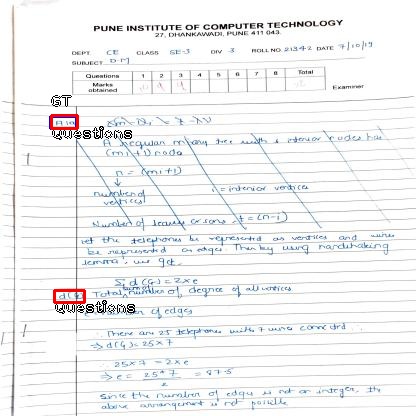 PUNE INSTITUTE OF COMPUTER TECHNOLOGY
27, DHANKAWADI, PUNE 411 043.
DEPT. CE CLASS SE-3 DIV 3 ROLL NO. 21342 DATE 7/10/19
SUBJECT D.M
Questions 1 2 3 4 5 6 7 8 Total
Marks obtained
Examiner
GT
Questions
A regular m-ary tree with i interior nodes has
(mi+1) node
n = (mi+1)
number of vertices
i = interior vertices
Number of leaves or sons, t = (n-i)
let the telephones be represented as vertices and wires
be represented as edges. Then by using handshaking
lemma, we get.
Σ d(G) = 2xe
Total number of degree of all vertices
Questions
number of edges
There are 25 telephones with 7 wires connected
⇒ d(G) = 25x7
∴ 25x7 = 2xe
⇒ e = 25*7 / 2 = 87.5
Since the number of edges is not an integer, the
above arrangement is not possible